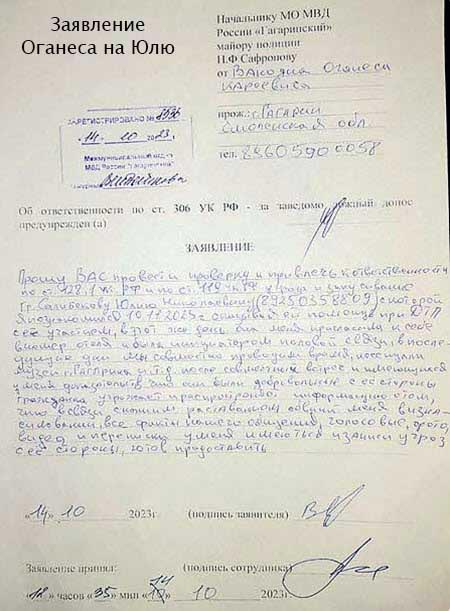 Заявление
Оганеса на Юлю
Начальнику МО МВД
России «Гагаринский»
майору полиции
И.Ф Сафронову
от Вакояна Оганеса
Кароевича
прож.: г. Гагарин
Смоленская обл
тел. 89605900058
ЗАРЕГИСТРИРОВАНО №
14 10 2023 г.
Межмуниципальный отдел
МВД России "Гагаринский"
Об ответственности по ст. 306 УК РФ - за заведомо ложный донос
предупрежден (а)
ЗАЯВЛЕНИЕ
Прошу ВАС провести проверку и привлечь к ответственности
по ст. 128.1 УК РФ и по ст. 119 УК РФ угроза и запугивание
гр. Салибекову Юлию Николаевну (89250358809) с которой
я познакомился 10.10.2023 с оказанием ей помощи при ДТП
с её участием, в тот же день она меня пригласила к себе
в номер отеля и была инициатором половой связи, в после-
дующие дни мы совместно проводили время, посещали
музеи г. Гагарина и т.д после совместных встреч и имеющихся
у меня доказательств что они были добровольные с её стороны
гражданка угрожает информацию о том,
что в связи с нашим расставанием обвинит меня в изна-
силовании, все факты нашего общения, голосовые, фото,
видео и переписки у меня имеються и записи угроз
с её стороны, готов предоставить
«14» 10 2023г. (подпись заявителя)
Заявление принял: (подпись сотрудника)
«12» часов «35» мин «14» 10 2023г.